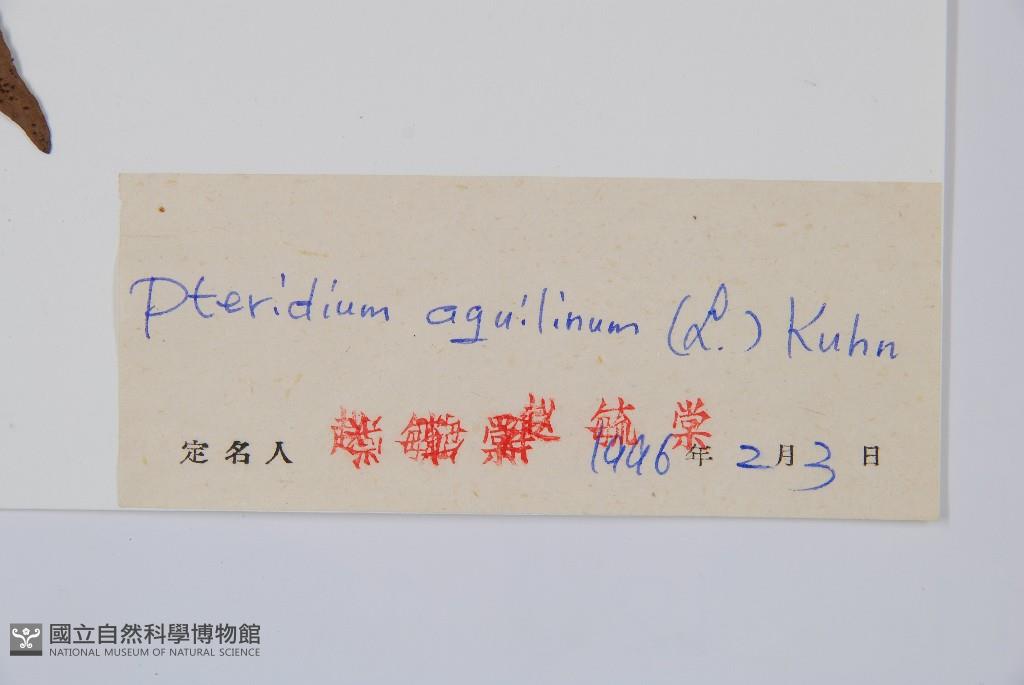 Pteridium aquilinum (L.) Kuhn
赵 毓 棠
定名人 1996年 2月3日
國立自然科學博物館
NATIONAL MUSEUM OF NATURAL SCIENCE